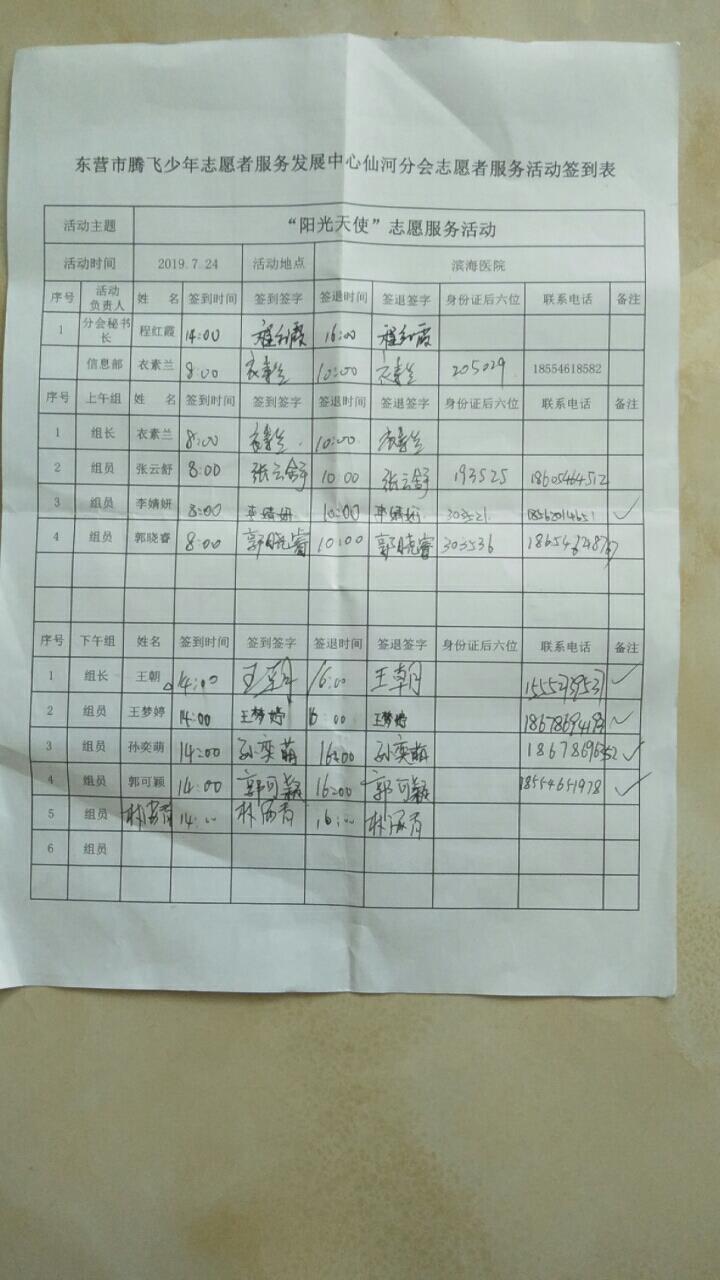 东营市腾飞少年志愿者服务发展中心仙河分会志愿者服务活动签到表
活动主题 “阳光天使”志愿服务活动
活动时间 2019.7.24 活动地点 滨海医院
序号 活动负责人 姓 名 签到时间 签到签字 签退时间 签退签字 身份证后六位 联系电话 备注
1 分会秘书长 程红霞 14:00 程红霞 16:00 程红霞
信息部 衣素兰 8:00 衣素兰 10:00 衣素兰 205029 18554618582
序号 上午组 姓 名 签到时间 签到签字 签退时间 签退签字 身份证后六位 联系电话 备注
1 组长 衣素兰 8:00 衣素兰 10:00 衣素兰
2 组员 张云舒 8:00 张云舒 10:00 张云舒 193525 18605464512
3 组员 李婧妍 8:00 李婧妍 10:00 李婧妍 303521 ✓
4 组员 郭晓睿 8:00 郭晓睿 10:00 郭晓睿 303536
序号 下午组 姓名 签到时间 签到签字 签退时间 签退签字 身份证后六位 联系电话 备注
1 组长 王朝 14:00 王朝 16:00 王朝 ✓
2 组员 王梦婷 14:00 王梦婷 16:00 王梦婷 ✓
3 组员 孙奕萌 14:00 孙奕萌 16:00 孙奕萌 ✓
4 组员 郭可颖 14:00 郭可颖 16:00 郭可颖 18554651978 ✓
5 组员 14:00 16:00
6 组员